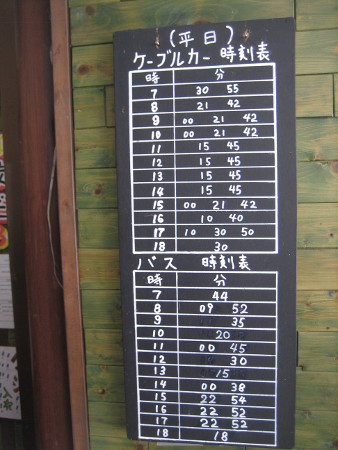 (平日)
ケーブルカー 時刻表
時 分
7 30 55
8 21 42
9 00 21 42
10 00 21 42
11 15 45
12 15 45
13 15 45
14 15 45
15 00 21 42
16 10 40
17 10 30 50
18 30
バス 時刻表
時 分
7 44
8 09 52
9 35
10 20
11 00 45
12 30
13 15
14 00 38
15 22 54
16 22 52
17 22 52
18 18